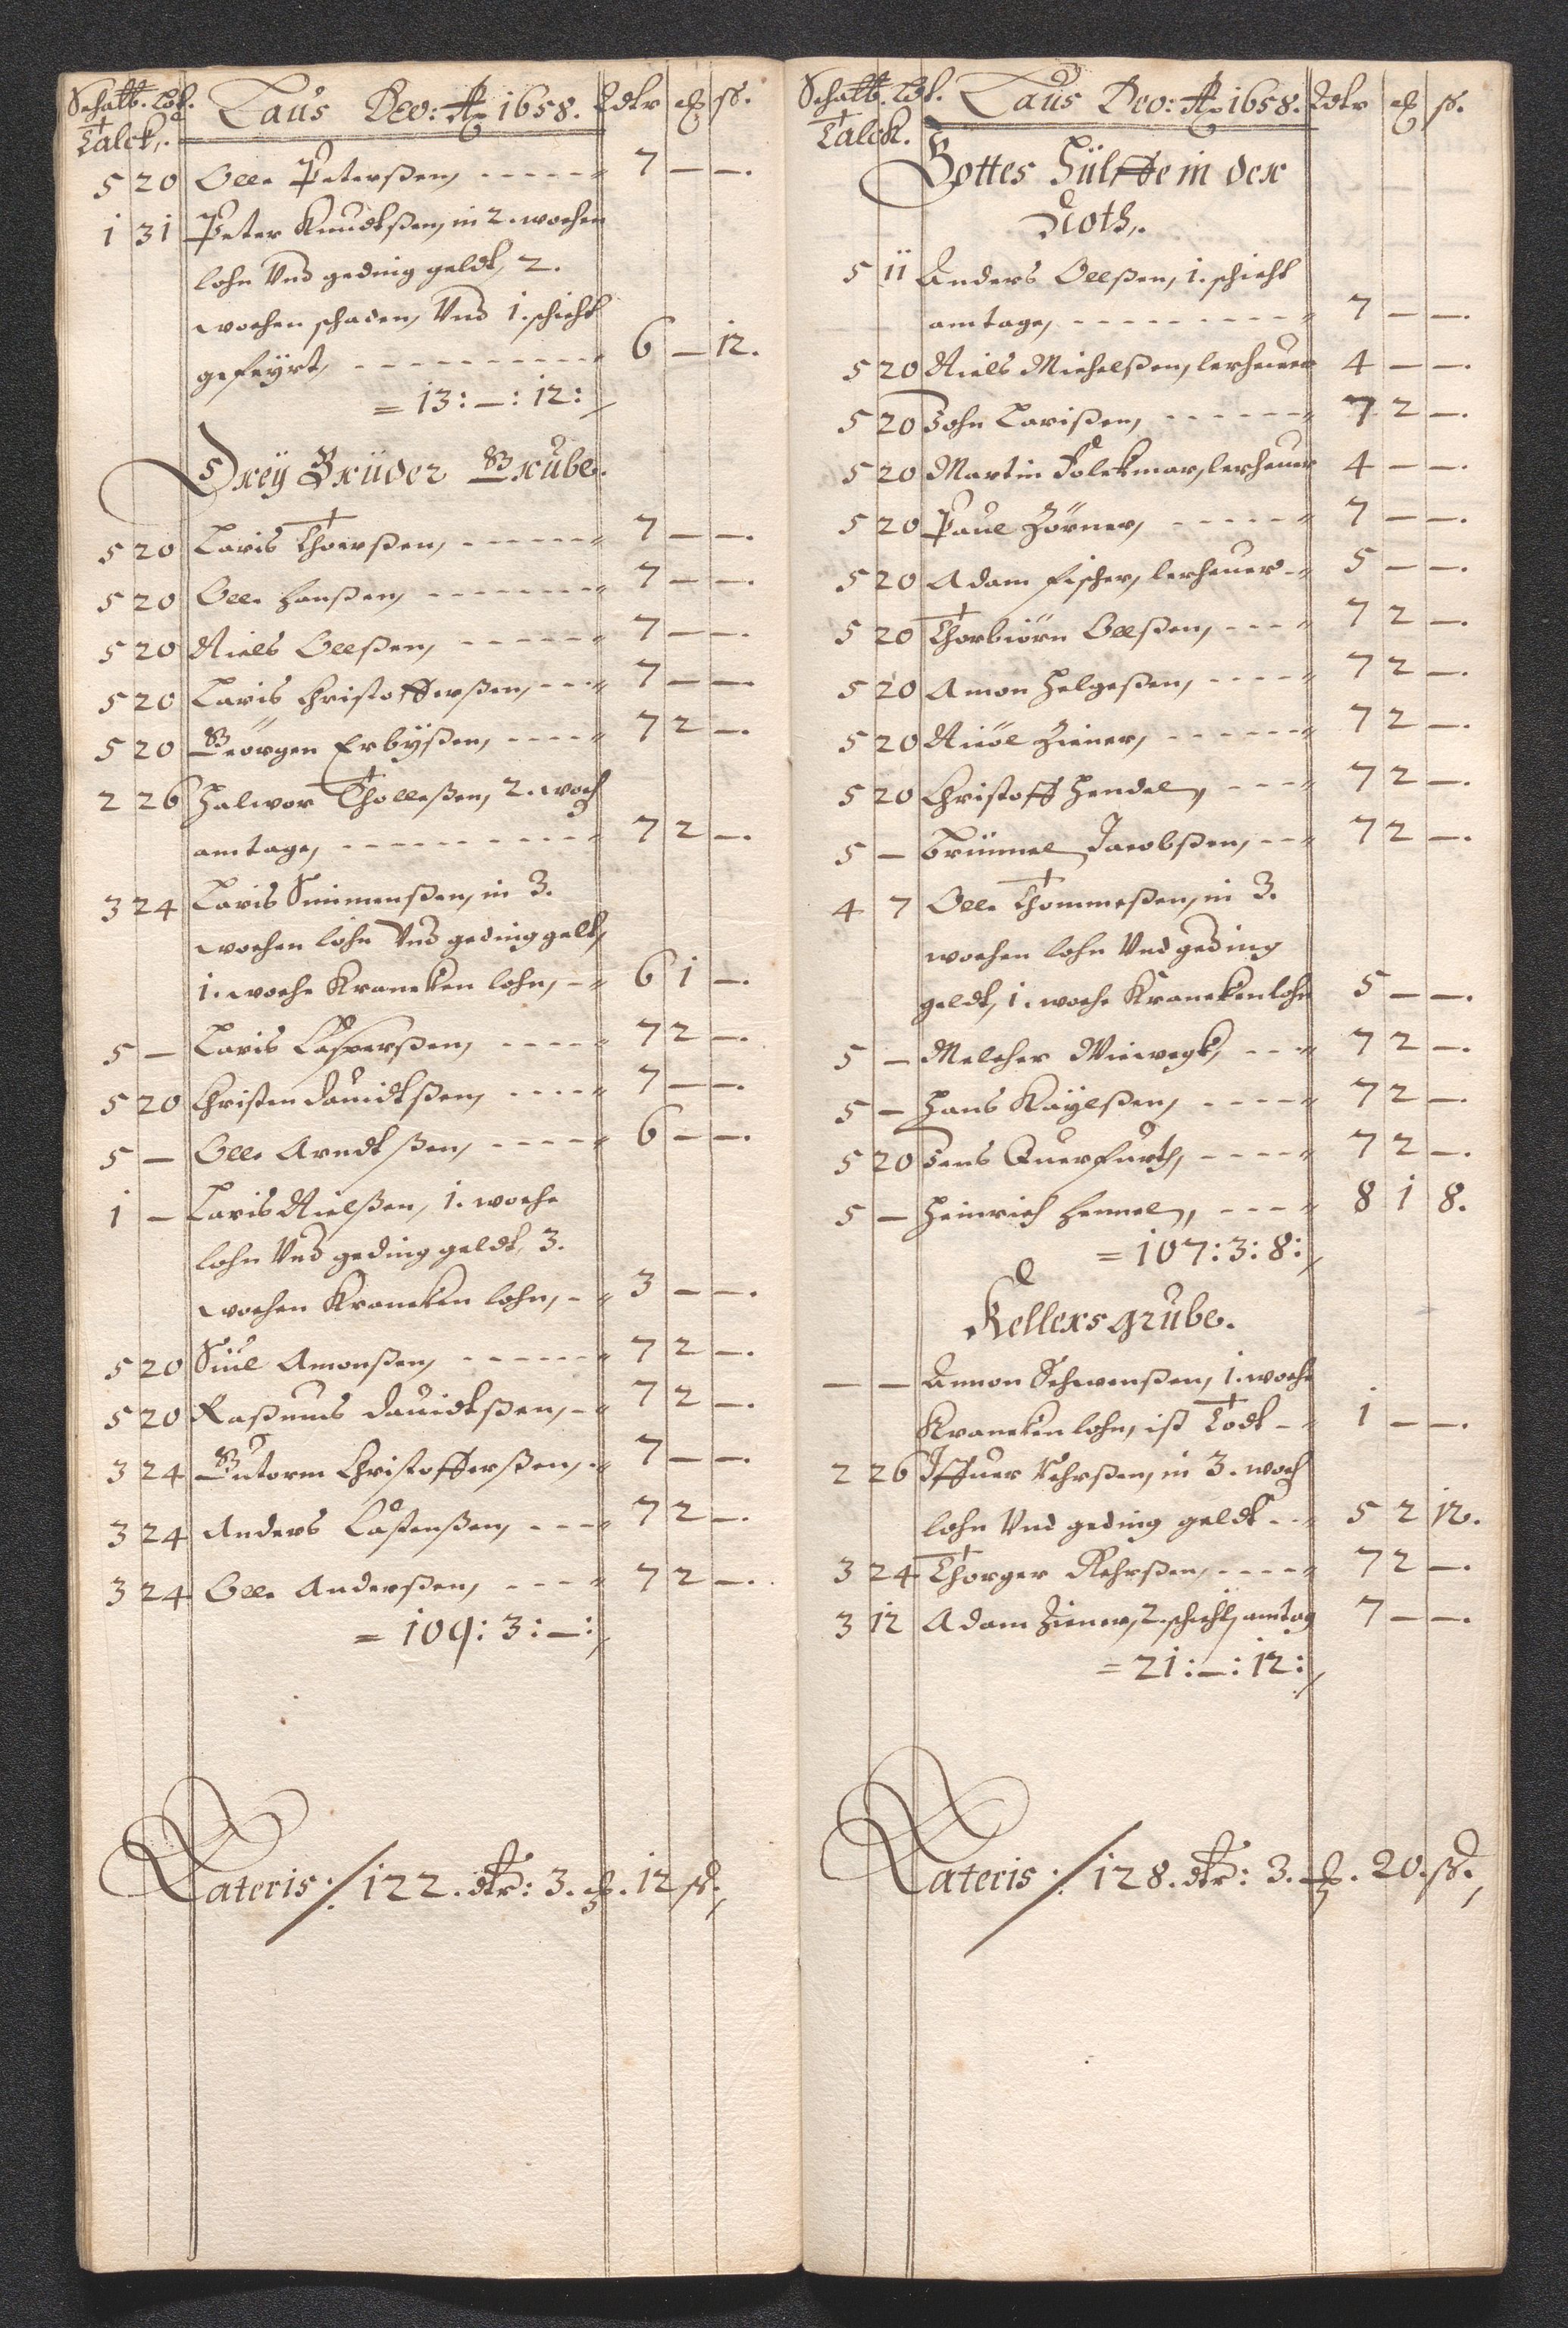 Schatt. Lot. Laus Deo: Ao 1658. Rdlr
Talck.
5 20 Olle Peterßen, ------ 7 — —.
1 31 Peter Knudtßen, in 2. wochen
lohn Vnd geding geldt, 2.
wochen schaden, Vnd 1. schicht
gefeÿrt, ---------- 6 — 12.
= 13: —: 12:
Dreÿ Brüder Grube.
5 20 Laris Thoerßen, ------ 7 — —.
5 20 Olle Hanßen, ------- 7 — —.
5 20 Niels Olleßen, ------ 7 — —.
5 20 Laris Christofferßen, --- 7 — —.
5 20 Geörgen Erbÿßen, ---- 7 2 —.
2 26 Halwor Tholleßen, 2. woch
amtage, --------- 7 2 —.
3 24 Laris Simmenßen, in 3.
wochen lohn Vnd geding gelt,
1. woche Krancken lohn, -- 6 1 —.
5 — Laris Casperßen, ---- 7 2 —.
5 20 Christen Dauidtßen, ---- 7 — —.
5 — Olle Arndtßen, ----- 6 — —.
1 — Laris Nielßen, 1. woche
lohn Vnd geding geldt, 3.
wochen Krancken lohn, -- 3 — —.
5 20 Siul Amonßen, ------ 7 2 —.
5 20 Raßmus Dauidtßen, -- 7 2 —.
3 24 Gutorm Christofferßen, - 7 — —.
3 24 Anders Castenßen, --- 7 2 —.
3 24 Olle Anderßen, ---- 7 2 —.
= 109: 3: —:
Lateris ./. 122. dlr: 3. 12 ß.
Schatt. Lot. Laus Deo: Ao 1658. Rdlr
Talck.
Gottes Hülffe in der
Noth.
5 11 Anders Olleßen, 1. schicht
amtage, --------- 7 — —.
5 20 Niels Michelßen, lerheuer 4 — —.
5 20 John Larißen, ------ 7 2 —.
5 20 Martin Folckmar, lerheuer 4 — —.
5 20 Paul Zörner, ------ 7 — —.
5 20 Adam Fischer, lerheuer -- 5 — —.
5 20 Thorbiörn Olleßen, ---- 7 2 —.
5 20 Amon Helgeßen, ---- 7 2 —.
5 20 Niiöl Ziener, ------ 7 2 —.
5 20 Christoff Hendel, ---- 7 2 —.
5 — Brümmel Jacobßen, --- 7 2 —.
4 7 Olle Thommeßen, in 3.
wochen lohn Vnd geding
geldt, 1. woche Krancken lohn 5 — —.
5 — Melcher Wiewegk, --- 7 2 —.
5 — Hans Kaÿlßen, ----- 7 2 —.
5 20 Jens Querfurth, ---- 7 2 —.
5 — Heinrich Hemmel, ---- 8 1 8.
= 107: 3: 8:
Kellers grube.
— — Ammon Schwenßen, 1. woche
Krancken lohn, ist Todt -- 1 — —.
2 26 Iffuer Sehrßen, in 3. woch
lohn Vnd geding geldt -- 5 2 12.
3 24 Thorger Rehrßen, ---- 7 2 —.
3 12 Adam Ziener, 2. schicht, amtag 7 — —.
= 21: —: 12:
Lateris ./. 128. dlr: 3. 20. ß.